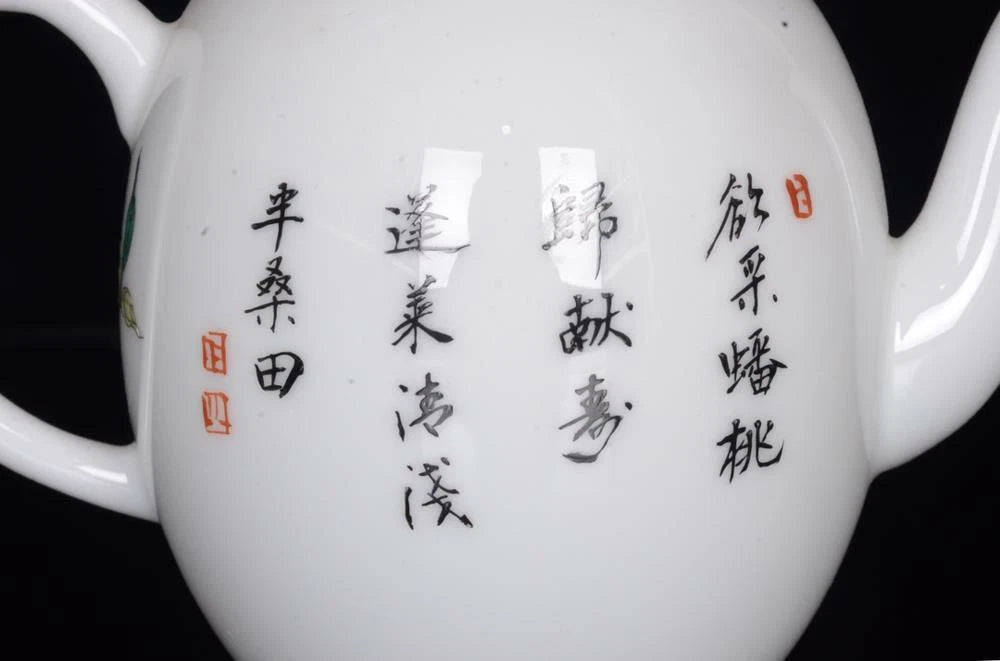 欲采蟠桃
歸献寿
蓬萊清淺
半桑田